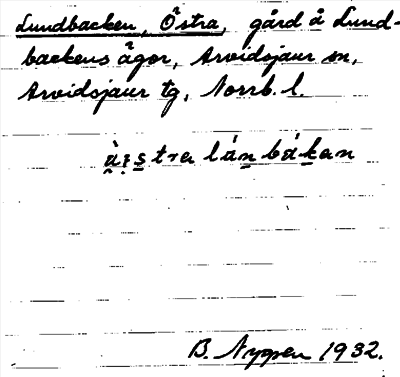 Lundbacken, Östra, gård å Lund-
backens ägor, Arvidsjaur sn,
Arvidsjaur tg, Norrb. l.
B. Nygren 1932.